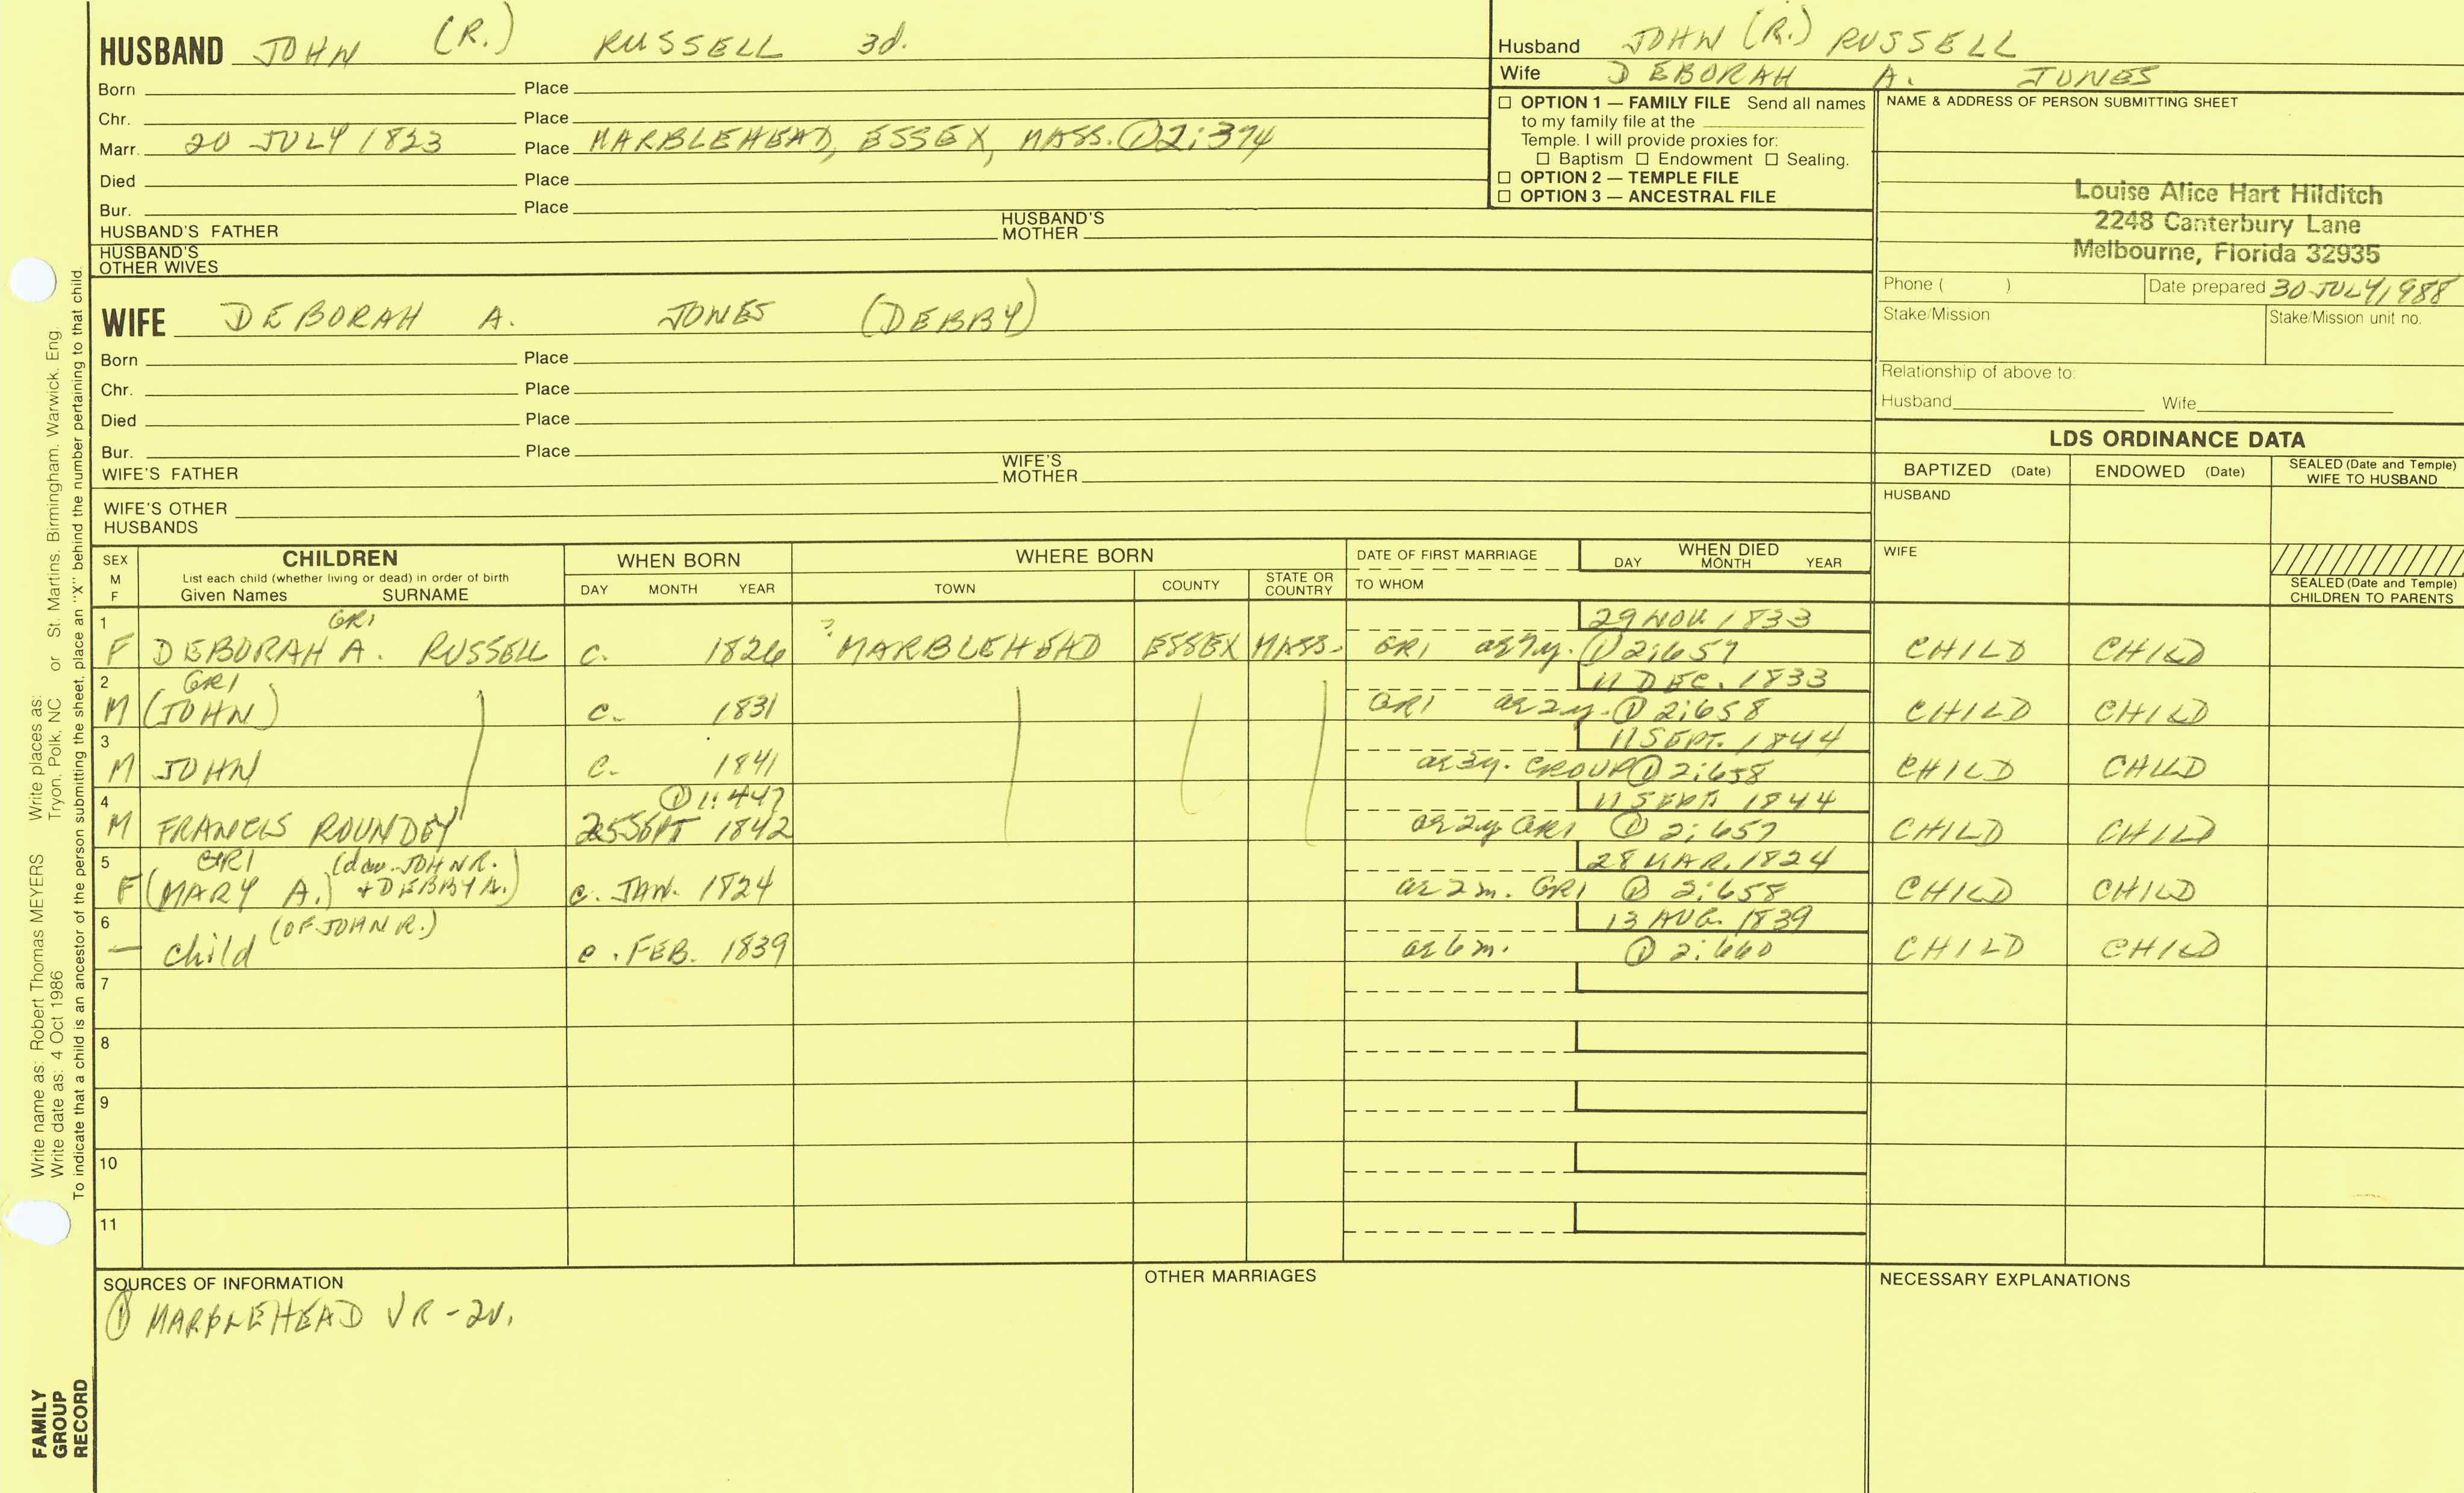 HUSBAND JOHN (R.) RUSSELL 3d.
Born Place
Chr. Place
Marr. 20 JULY 1823 Place MARBLEHEAD, ESSEX, MASS. ① 2:374
Died Place
Bur. Place
HUSBAND'S FATHER HUSBAND'S MOTHER
HUSBAND'S OTHER WIVES
WIFE DEBORAH A. JONES (DEBBY)
Born Place
Chr. Place
Died Place
Bur. Place
WIFE'S FATHER WIFE'S MOTHER
WIFE'S OTHER HUSBANDS
Husband JOHN (R.) RUSSELL
Wife DEBORAH A. JONES
☐ OPTION 1 — FAMILY FILE Send all names
to my family file at the
Temple. I will provide proxies for:
☐ Baptism ☐ Endowment ☐ Sealing.
☐ OPTION 2 — TEMPLE FILE
☐ OPTION 3 — ANCESTRAL FILE
NAME & ADDRESS OF PERSON SUBMITTING SHEET
Louise Alice Hart Hilditch
2248 Canterbury Lane
Melbourne, Florida 32935
Phone ( ) Date prepared 30 JULY 1988
Stake/Mission Stake/Mission unit no.
Relationship of above to:
Husband Wife
LDS ORDINANCE DATA
BAPTIZED (Date) ENDOWED (Date) SEALED (Date and Temple) WIFE TO HUSBAND
HUSBAND
WIFE
SEALED (Date and Temple) CHILDREN TO PARENTS
SEX M F
CHILDREN
List each child (whether living or dead) in order of birth
Given Names SURNAME
WHEN BORN
DAY MONTH YEAR
WHERE BORN
TOWN COUNTY STATE OR COUNTRY
DATE OF FIRST MARRIAGE
TO WHOM
WHEN DIED
DAY MONTH YEAR
1 GRI 29 NOV. 1833
F DEBORAH A. RUSSELL c. 1826 ? MARBLEHEAD ESSEX MASS. GRI ae 7y. ① 2:657 CHILD CHILD
2 GRI 11 DEC. 1833
M (JOHN) c. 1831 GRI ae 2y. ① 2:658 CHILD CHILD
3 11 SEPT. 1844
M JOHN c. 1841 ae 3y. GROUP ① 2:658 CHILD CHILD
4 ① 1:447 11 SEPT. 1844
M FRANCIS ROUNDEY 25 SEPT 1842 ae 2y GRI ① 2:657 CHILD CHILD
5 GRI (dau. JOHN R. + DEBBY A.) 28 MAR. 1824
F (MARY A.) c. JAN. 1824 ae 2m. GRI ① 2:658 CHILD CHILD
6 (OF JOHN R.) 13 AUG. 1839
— child c. FEB. 1839 ae 6m. ① 2:660 CHILD CHILD
7
8
9
10
11
SOURCES OF INFORMATION
① MARBLEHEAD VR - 2v.
OTHER MARRIAGES
NECESSARY EXPLANATIONS
Write name as: Robert Thomas MEYERS Write places as: Tryon, Polk, NC or St. Martins, Birmingham, Warwick, Eng
Write date as: 4 Oct 1986
To indicate that a child is an ancestor of the person submitting the sheet, place an "X" behind the number pertaining to that child.
FAMILY
GROUP
RECORD